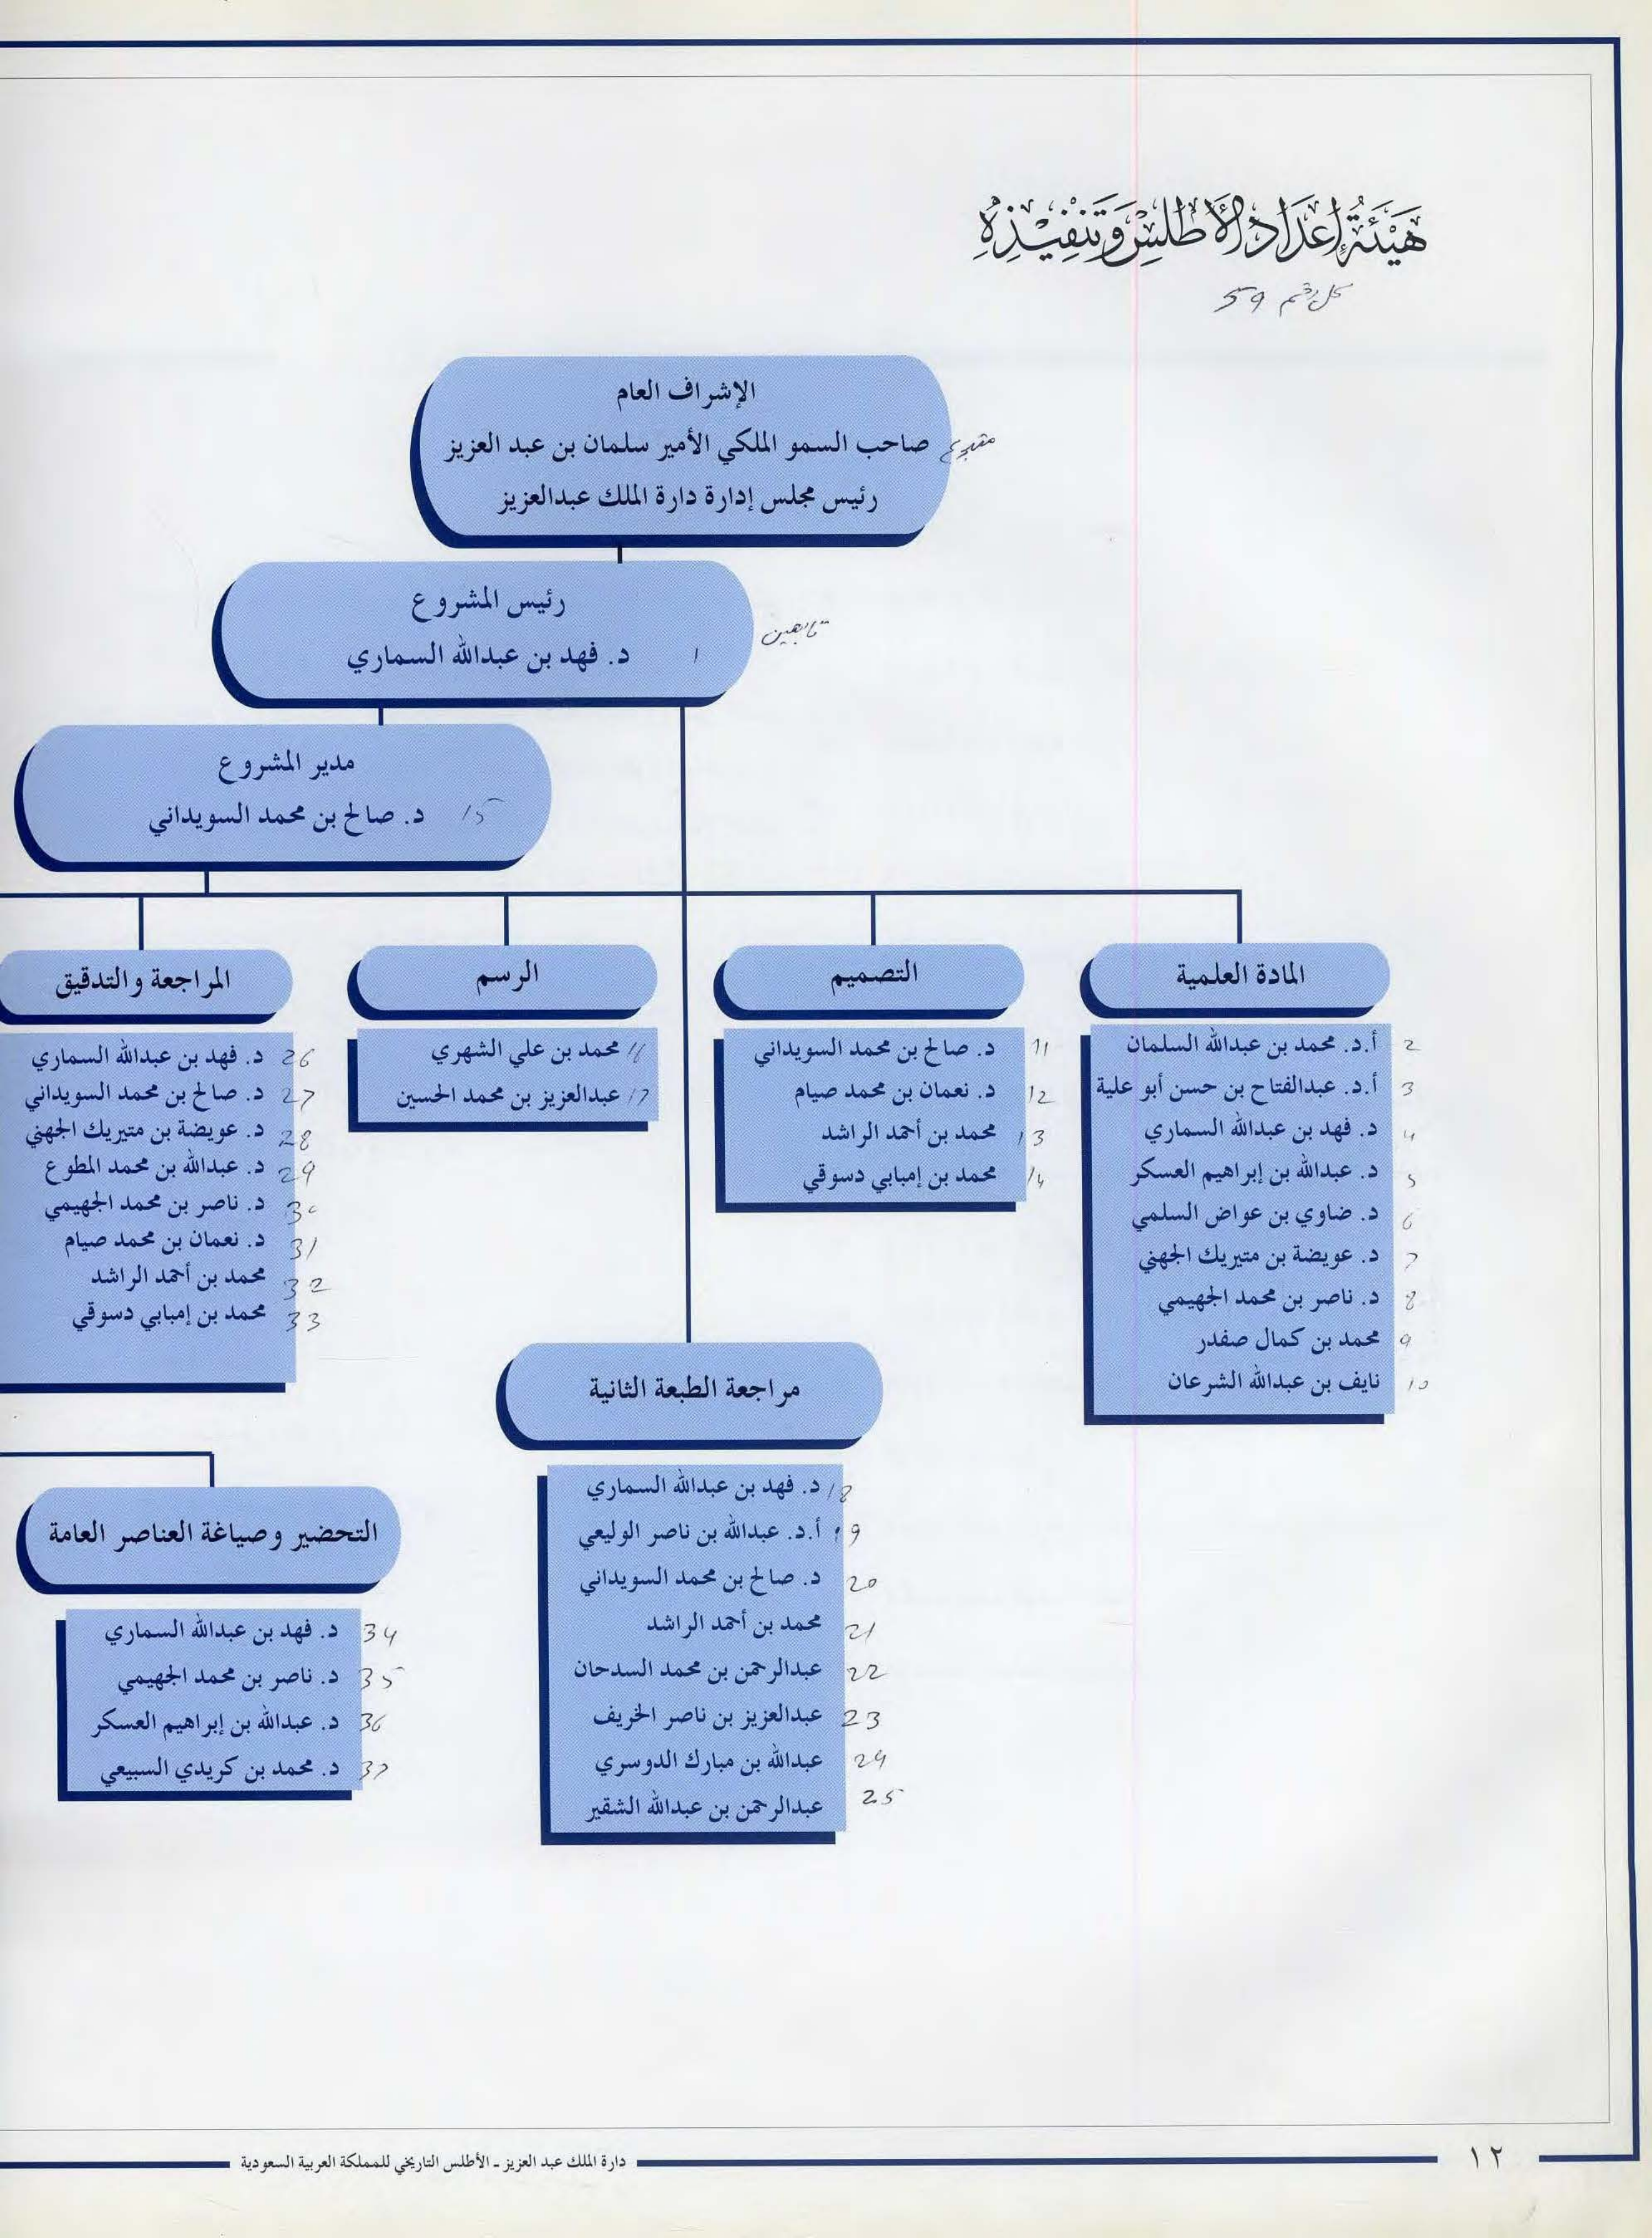 هَيْئَةُ إِعْدَادِ الأَطْلَسِ وَتَنْفِيْذِهِ
59
الإشراف العام
صاحب السمو الملكي الأمير سلمان بن عبد العزيز
رئيس مجلس إدارة دارة الملك عبدالعزيز
رئيس المشروع
تابعين
1 د. فهد بن عبدالله السماري
مدير المشروع
15 د. صالح بن محمد السويداني
المادة العلمية
2 أ.د. محمد بن عبدالله السلمان
3 أ.د. عبدالفتاح بن حسن أبو علية
4 د. فهد بن عبدالله السماري
5 د. عبدالله بن إبراهيم العسكر
6 د. ضاوي بن عواض السلمي
7 د. عويضة بن متيريك الجهني
8 د. ناصر بن محمد الجهيمي
9 محمد بن كمال صفدر
10 نايف بن عبدالله الشرعان
التصميم
11 د. صالح بن محمد السويداني
12 د. نعمان بن محمد صيام
13 محمد بن أحمد الراشد
14 محمد بن إمبابي دسوقي
الرسم
16 محمد بن علي الشهري
17 عبدالعزيز بن محمد الحسين
المراجعة والتدقيق
26 د. فهد بن عبدالله السماري
27 د. صالح بن محمد السويداني
28 د. عويضة بن متيريك الجهني
29 د. عبدالله بن محمد المطوع
30 د. ناصر بن محمد الجهيمي
31 د. نعمان بن محمد صيام
32 محمد بن أحمد الراشد
33 محمد بن إمبابي دسوقي
مراجعة الطبعة الثانية
18 د. فهد بن عبدالله السماري
19 أ.د. عبدالله بن ناصر الوليعي
20 د. صالح بن محمد السويداني
21 محمد بن أحمد الراشد
22 عبدالرحمن بن محمد السدحان
23 عبدالعزيز بن ناصر الخريف
24 عبدالله بن مبارك الدوسري
25 عبدالرحمن بن عبدالله الشقير
التحضير وصياغة العناصر العامة
34 د. فهد بن عبدالله السماري
35 د. ناصر بن محمد الجهيمي
36 د. عبدالله بن إبراهيم العسكر
37 د. محمد بن كريدي السبيعي
١٢
دارة الملك عبد العزيز ـ الأطلس التاريخي للمملكة العربية السعودية